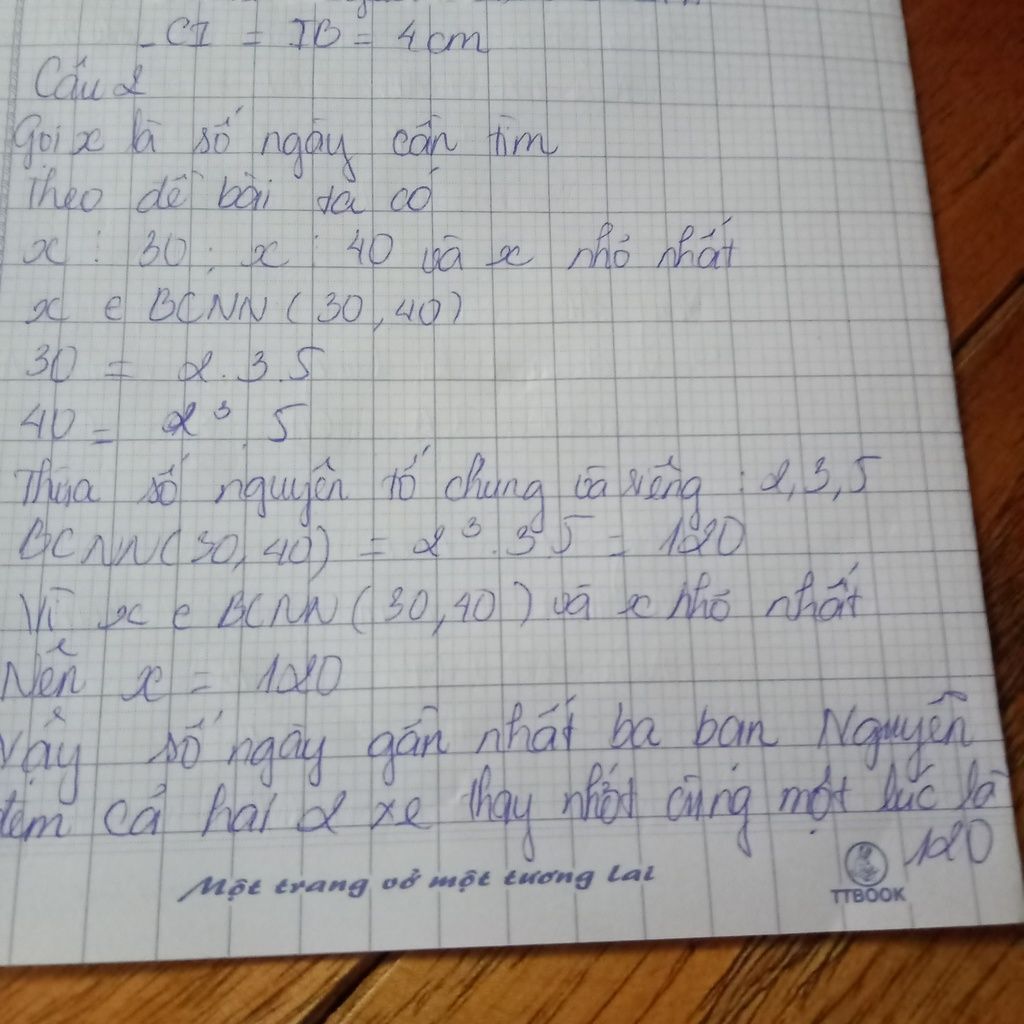 - CI = IB = 4cm
Câu 2
Gọi x là số ngày cần tìm
Theo đề bài ta có
x ⋮ 30 ; x ⋮ 40 và x nhỏ nhất
x e BCNN (30, 40)
30 = 2.3.5
40 = 2³.5
Thừa số nguyên tố chung và riêng : 2, 3, 5
BCNN(30, 40) = 2³.3.5 = 120
Vì x e BCNN (30, 40) và x nhỏ nhất
Nên x = 120
Vậy số ngày gần nhất ba bạn Nguyên
đem cả hai 2 xe thay nhớt cùng một lúc là
120
Một trang vở một tương lai
TTBOOK